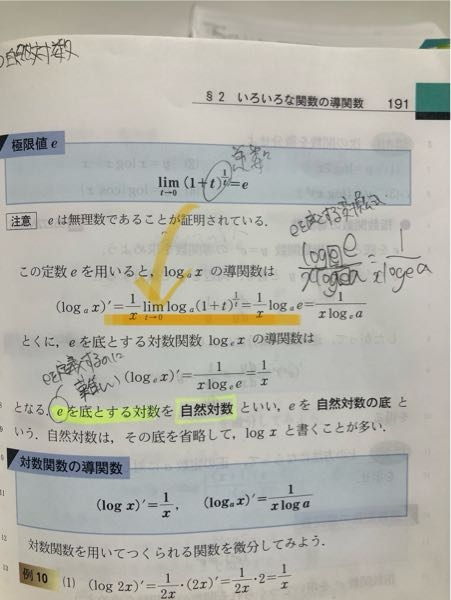 自然対数
§2 いろいろな関数の導関数 191
極限値 e
lim t→0 (1+t)^{1/t} = e
注意 e は無理数であることが証明されている．
e を底とする
この定数 e を用いると，log_a x の導関数は
log e e / x log e a = 1 / x log e a
(log_a x)′ = 1/x lim t→0 log_a (1+t)^{1/t} = 1/x log_a e = 1/(x log_e a)
とくに，e を底とする対数関数 log_e x の導関数は
(log_e x)′ = 1/(x log_e e) = 1/x
となる．e を底とする対数を 自然対数 といい，e を 自然対数の底 と
いう．自然対数は，その底を省略して，log x と書くことが多い．
対数関数の導関数
(log x)′ = 1/x, (log_a x)′ = 1/(x log a)
対数関数を用いてつくられる関数を微分してみよう．
例10 (1) (log 2x)′ = 1/2x・(2x)′ = 1/2x・2 = 1/x
8
9
10
11
12
13